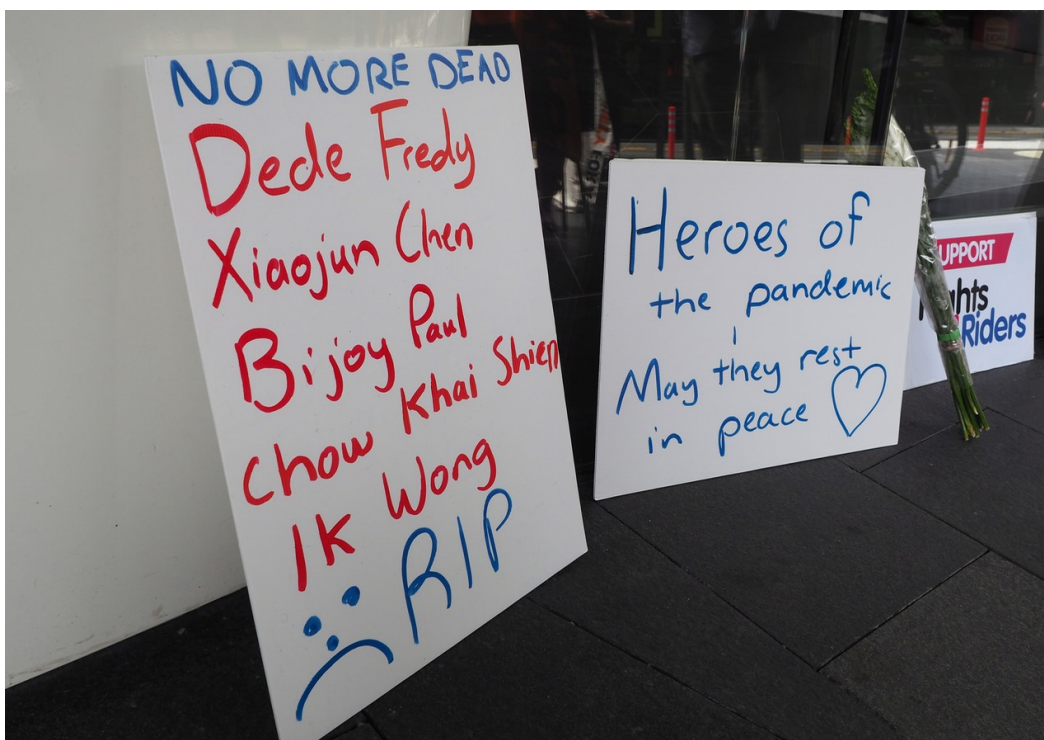 NO MORE DEAD
Dede Fredy
Xiaojun Chen
Bijoy Paul
Chow Khai Shien
Ik Wong
RIP
Heroes of
the pandemic
May they rest
in peace
UPPORT
hts
Riders